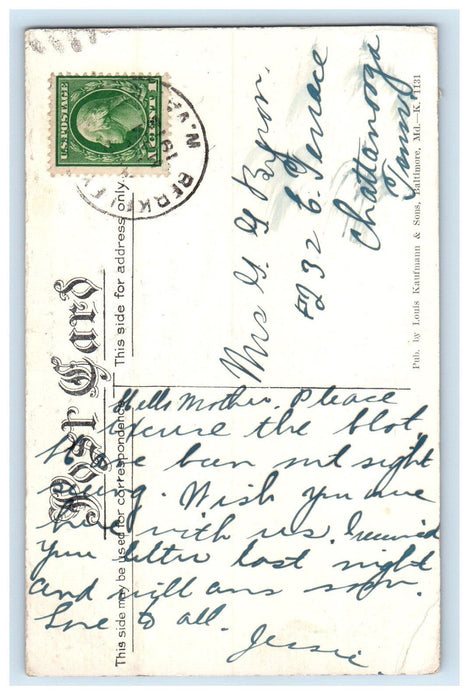 U.S. POSTAGE
1 CENT 1
BERKELEY
Post Card
This side may be used for correspondence
This side for address only.
Mrs G. G. Bryon.
#232 E. Terrace
Chattanooga
Tenn.
Pub. by Louis Kaufmann & Sons, Baltimore, Md.—K. 1131
Hello Mother. Please
excuse the blot.
Have been out sight
seing. Wish you were
here with us. I received
you letter last night
and will ans soon.
Love to all.
Jessie.